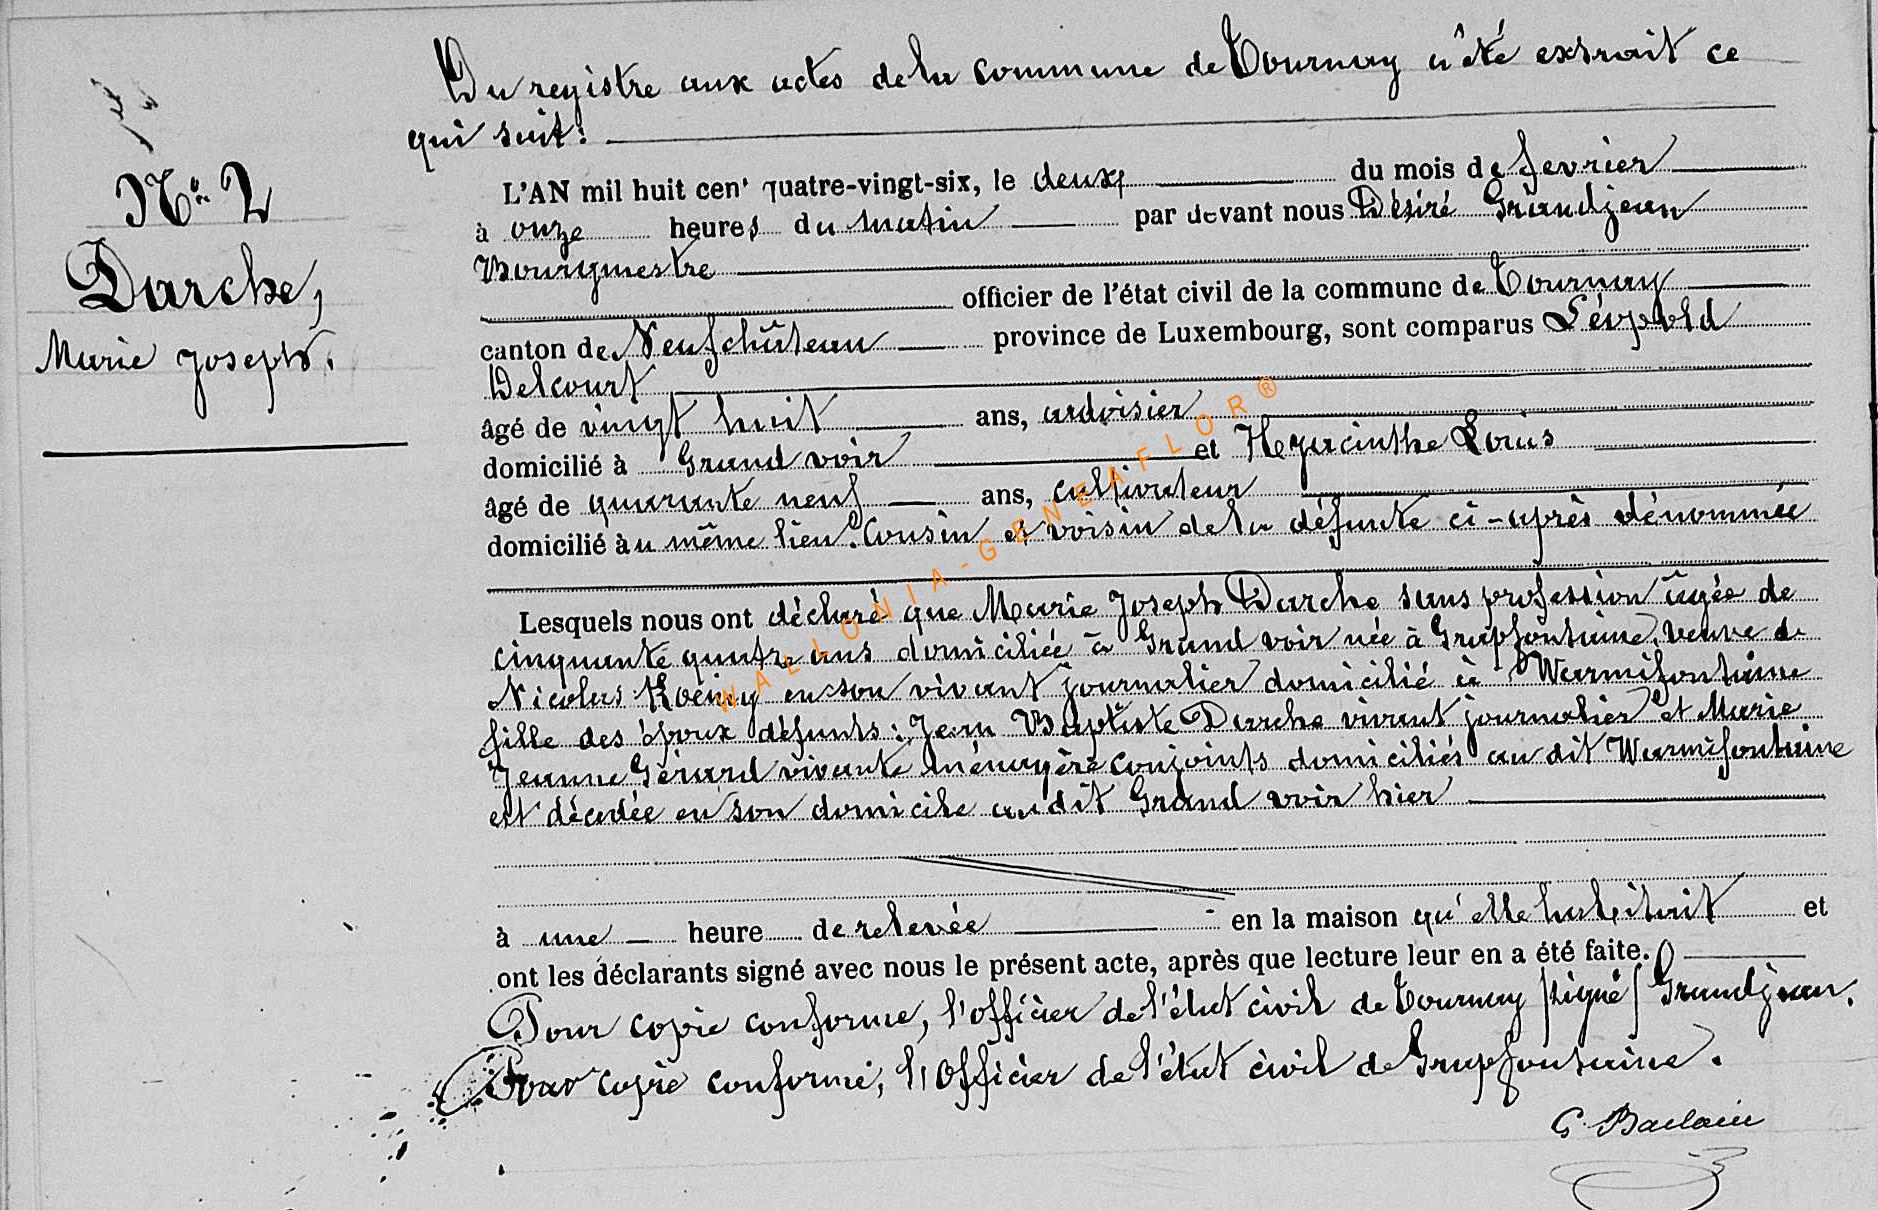 Du registre aux actes de la commune de Tournay a été extrait ce
qui suit:
N° 2
Darche,
Marie Joseph.
L'AN mil huit cent quatre-vingt-six, le deux du mois de fevrier
à onze heures du matin par devant nous Désiré Grandjean
Bourgmestre
officier de l'état civil de la commune de Tournay
canton de Neufchâteau province de Luxembourg, sont comparus Léopold
Delcourt
âgé de vingt huit ans, ardoisier
domicilié à Grand voir et Heyacinthe Louis
âgé de quarante neuf ans, cultivateur
domicilié au même lieu. Cousin et voisin de la défunte ci-après dénommée
Lesquels nous ont déclaré que Marie Joseph Darche sans profession âgée de
cinquante quatre ans domiciliée à Grand voir née à Grapfontaine, veuve de
Nicolas en son vivant journalier domicilié à Warmifontaine
fille des époux défunts: Jean Baptiste Darche vivant journalier et Marie
Jeanne Gérard vivante ménagère conjoints domiciliés au dit Warmifontaine
est décedée en son domicile au dit Grand voir hier
à une heure de relevée en la maison qu'elle habitait et
ont les déclarants signé avec nous le présent acte, après que lecture leur en a été faite.
Pour copie conforme, l'officier de l'état civil de Tournay /signé/ Grandjean.
Pour copie conforme, l'Officier de l'état civil de Grapfontaine.
WALLONIA-GENEAFLOR®